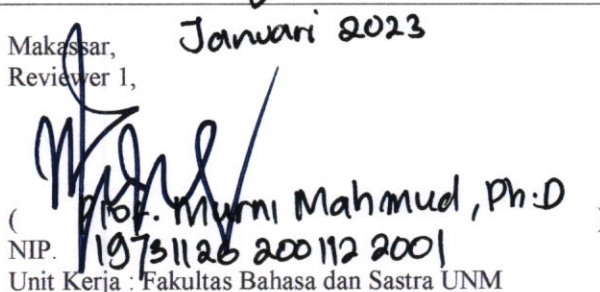 Makassar, Januari 2023
Reviewer 1,
( Prof. Murni Mahmud, Ph.D )
NIP. 19731126 200112 2001
Unit Kerja : Fakultas Bahasa dan Sastra UNM